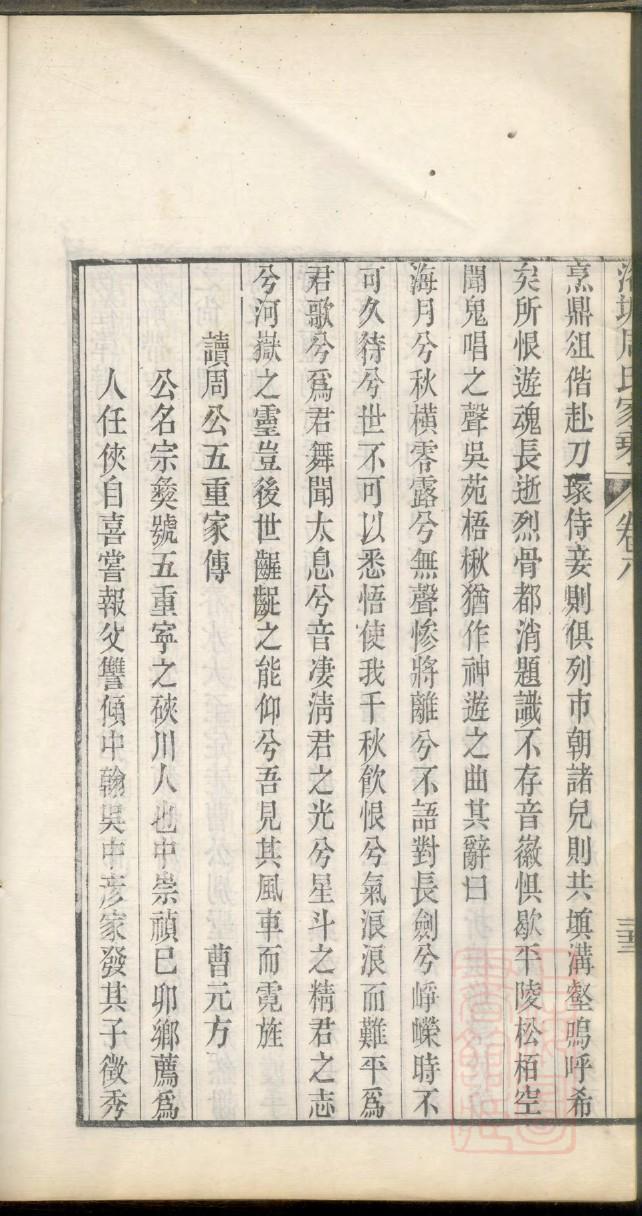 洛塘周氏家乘 卷六 三十三
烹鼎俎偕赴刀環侍妾則俱列市朝諸兒則共塡溝壑嗚呼希
矣所恨遊魂長逝烈骨都消題識不存音徽惧歇平陵松栢空
聞鬼唱之聲吳苑梧楸猶作神遊之曲其辭曰
海月兮秋橫零露兮無聲慘將離兮不語對長劍兮崢嶸時不
可久待兮世不可以悉悟使我千秋飮恨兮氣浪浪而難平爲
君歌兮爲君舞聞太息兮音凄淸君之光兮星斗之精君之志
兮河嶽之靈豈後世齷齪之能仰兮吾見其風車而霓旌
讀周公五重家傳 曹元方
公名宗彝號五重寧之硤川人也中崇禎已卯鄉薦爲
人任俠自喜嘗報父讐傾中翰吳中彥家發其子徵秀